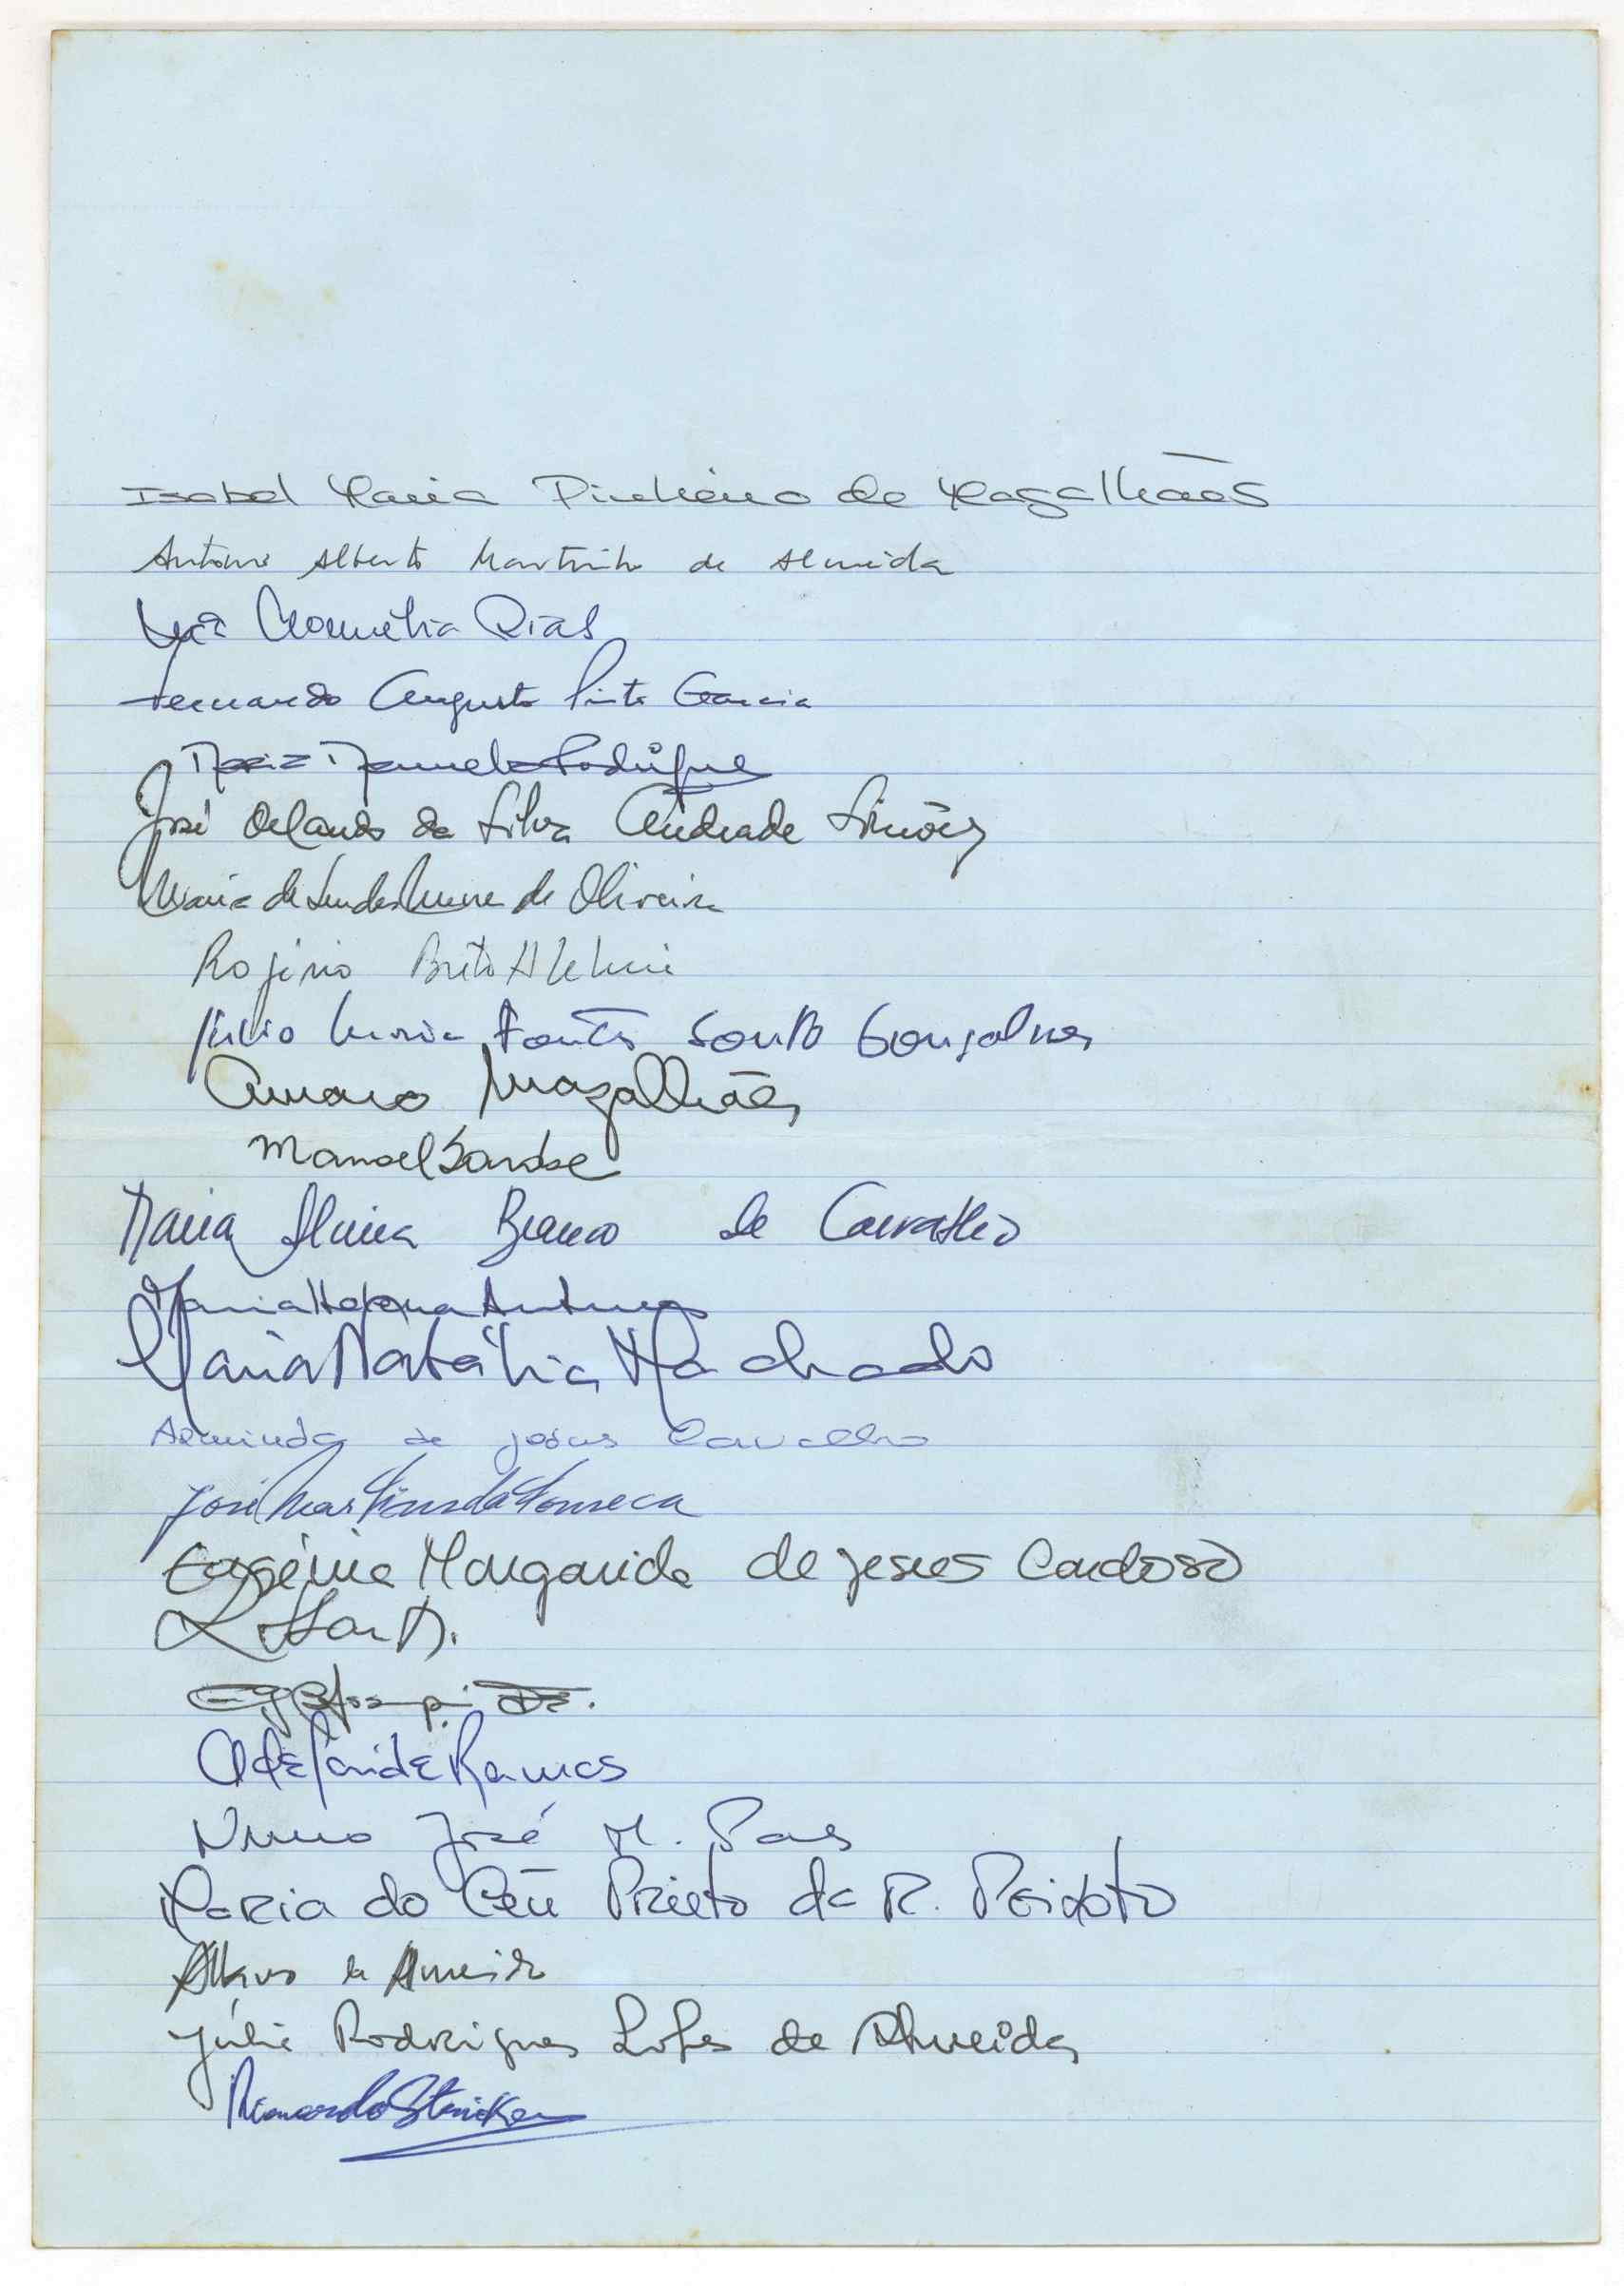 Isabel Maria Pinheiro de Magalhães
António Alberto Martinho de Almeida
Dias
Fernando Augusto Pinto Garcia
Maria Manuela Rodrigues
José Orlando da Silva Andrade Simões
Maria de Lurdes de Oliveira
Rogério Brito
Júlio Maria Fontes Souto Gonçalves
Amaro Magalhães
Manoel
Maria Branco de Carvalho
Maria Helena Antunes
Maria Natália Machado
Arminda de Jesus Carvalho
José Martins da Fonseca
Eugénia Margarida de Jesus Cardoso
Adelaide Ramos
Nuno José M. Pais
Maria do Céu Prieto da R. Peixoto
Álvaro de Almeida
Júlia Rodrigues Lopes de Almeida